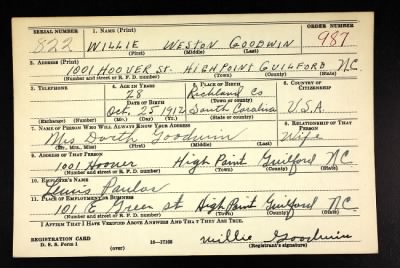 SERIAL NUMBER 1. NAME (Print) ORDER NUMBER
822 WILLIE WESTON GOODWIN 987
(First) (Middle) (Last)
2. ADDRESS (Print)
1001 HOOVER ST. HIGH POINT GUILFORD N.C.
(Number and street or R. F. D. number) (Town) (County) (State)
3. TELEPHONE 4. AGE IN YEARS 5. PLACE OF BIRTH 6. COUNTRY OF CITIZENSHIP
28 Richland Co
DATE OF BIRTH (Town or county)
Oct. 25 1912 South Carolina U.S.A.
(Exchange) (No.) (Mo.) (Day) (Yr.) (State or country)
7. NAME OF PERSON WHO WILL ALWAYS KNOW YOUR ADDRESS 8. RELATIONSHIP OF THAT PERSON
Mrs Goodwin Wife
(Mr., Mrs., Miss) (First) (Middle) (Last)
9. ADDRESS OF THAT PERSON
1001 Hoover High Point Guilford N.C.
(Number and street or R. F. D. number) (Town) (County) (State)
10. EMPLOYER'S NAME
Lewis
11. PLACE OF EMPLOYMENT OR BUSINESS
101 E Green st High Point Guilford N.C.
(Number and street or R. F. D. number) (Town) (County) (State)
I AFFIRM THAT I HAVE VERIFIED ABOVE ANSWERS AND THAT THEY ARE TRUE.
REGISTRATION CARD
D. S. S. Form 1 (over) 16—17105 Willie Goodwin
(Registrant's signature)